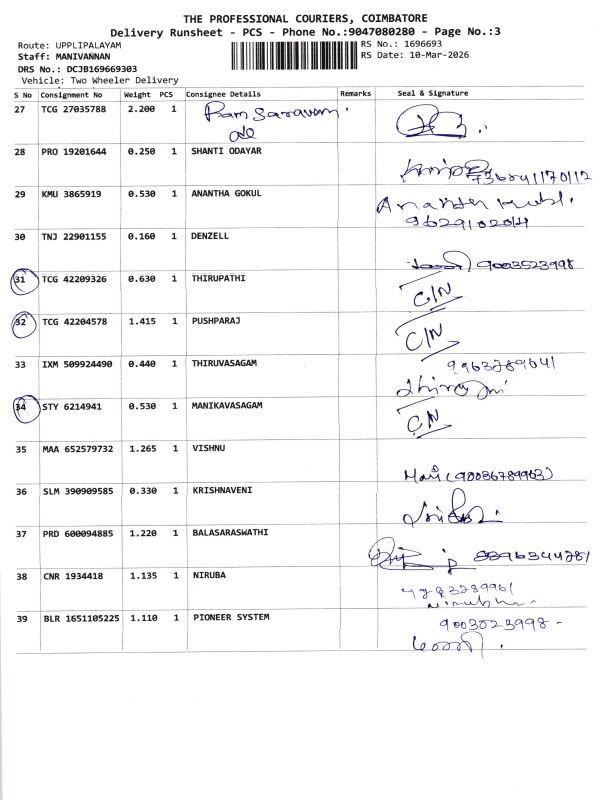 THE PROFESSIONAL COURIERS, COIMBATORE
Delivery Runsheet - PCS - Phone No.:9047080280 - Page No.:3
Route: UPPLIPALAYAM RS No.: 1696693
Staff: MANIVANNAN RS Date: 10-Mar-2026
DRS No.: DCJB169669303
Vehicle: Two Wheeler Delivery
S No Consignment No Weight PCS Consignee Details Remarks Seal & Signature
27 TCG 27035788 2.200 1
28 PRO 19201644 0.250 1 SHANTI ODAYAR
29 KMU 3865919 0.530 1 ANANTHA GOKUL
9629102014
30 TNJ 22901155 0.160 1 DENZELL 9003523998
31 TCG 42209326 0.630 1 THIRUPATHI C/N
32 TCG 42204578 1.415 1 PUSHPARAJ C/N
33 IXM 509924490 0.440 1 THIRUVASAGAM
34 STY 6214941 0.530 1 MANIKAVASAGAM C/N
35 MAA 652579732 1.265 1 VISHNU
(90036789963)
36 SLM 390909585 0.330 1 KRISHNAVENI
37 PRD 600094885 1.220 1 BALASARASWATHI
38 CNR 1934418 1.135 1 NIRUBA
39 BLR 1651105225 1.110 1 PIONEER SYSTEM
9003023998 -